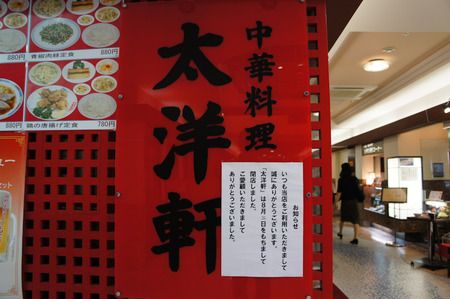 880円
880円
青椒肉絲定食
880円
鶏の唐揚げ定食
780円
中華料理
太洋軒
お知らせ
いつも当店をご利用いただきまして
誠にありがとうございます。
「太洋軒」は8月31日をもちまして
閉店しました。
ご愛顧いただきまして
ありがとうございました。